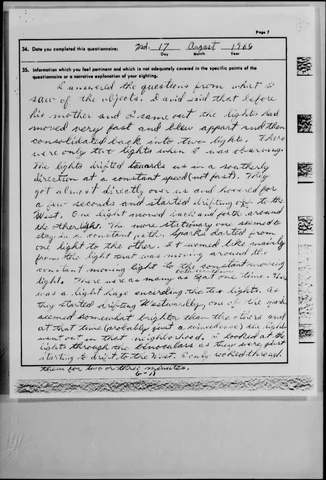 Page 7
34. Date you completed this questionnaire: Wed. 17 August 1966
Day Month Year
35. Information which you feel pertinent and which is not adequately covered in the specific points of the
questionnaire or a narrative explanation of your sighting.
I answered the questions from what I
saw of the objects. David said that before
his mother and I came out the lights had
moved very fast and blew appart and then
consolidated back into two lights. There
were only two lights when I was observing.
The lights drifted towards us in a southerly
direction at a constant speed (not fast). They
got almost directly over us and hovered for
a few seconds and started drifting off to the
West. One light moved back and forth around
the other light. The more stationary one seemed to
stay in a constant path. Sparks darted from
one light to the other. It seemed like mainly
from the light that was moving around the
constant moving light to the constant moving
light. There were as many as at one time. There
was a light haze encircling the two lights. As
they started drifting Westwardly, one of the
seemed somewhat brighter than the others and
at that time (probably just a coincidence) the lights
went out in that neighborhood. I looked at the
lights through the binoculars as they were just
starting to drift to the West. I only looked through
them for two or three minutes.